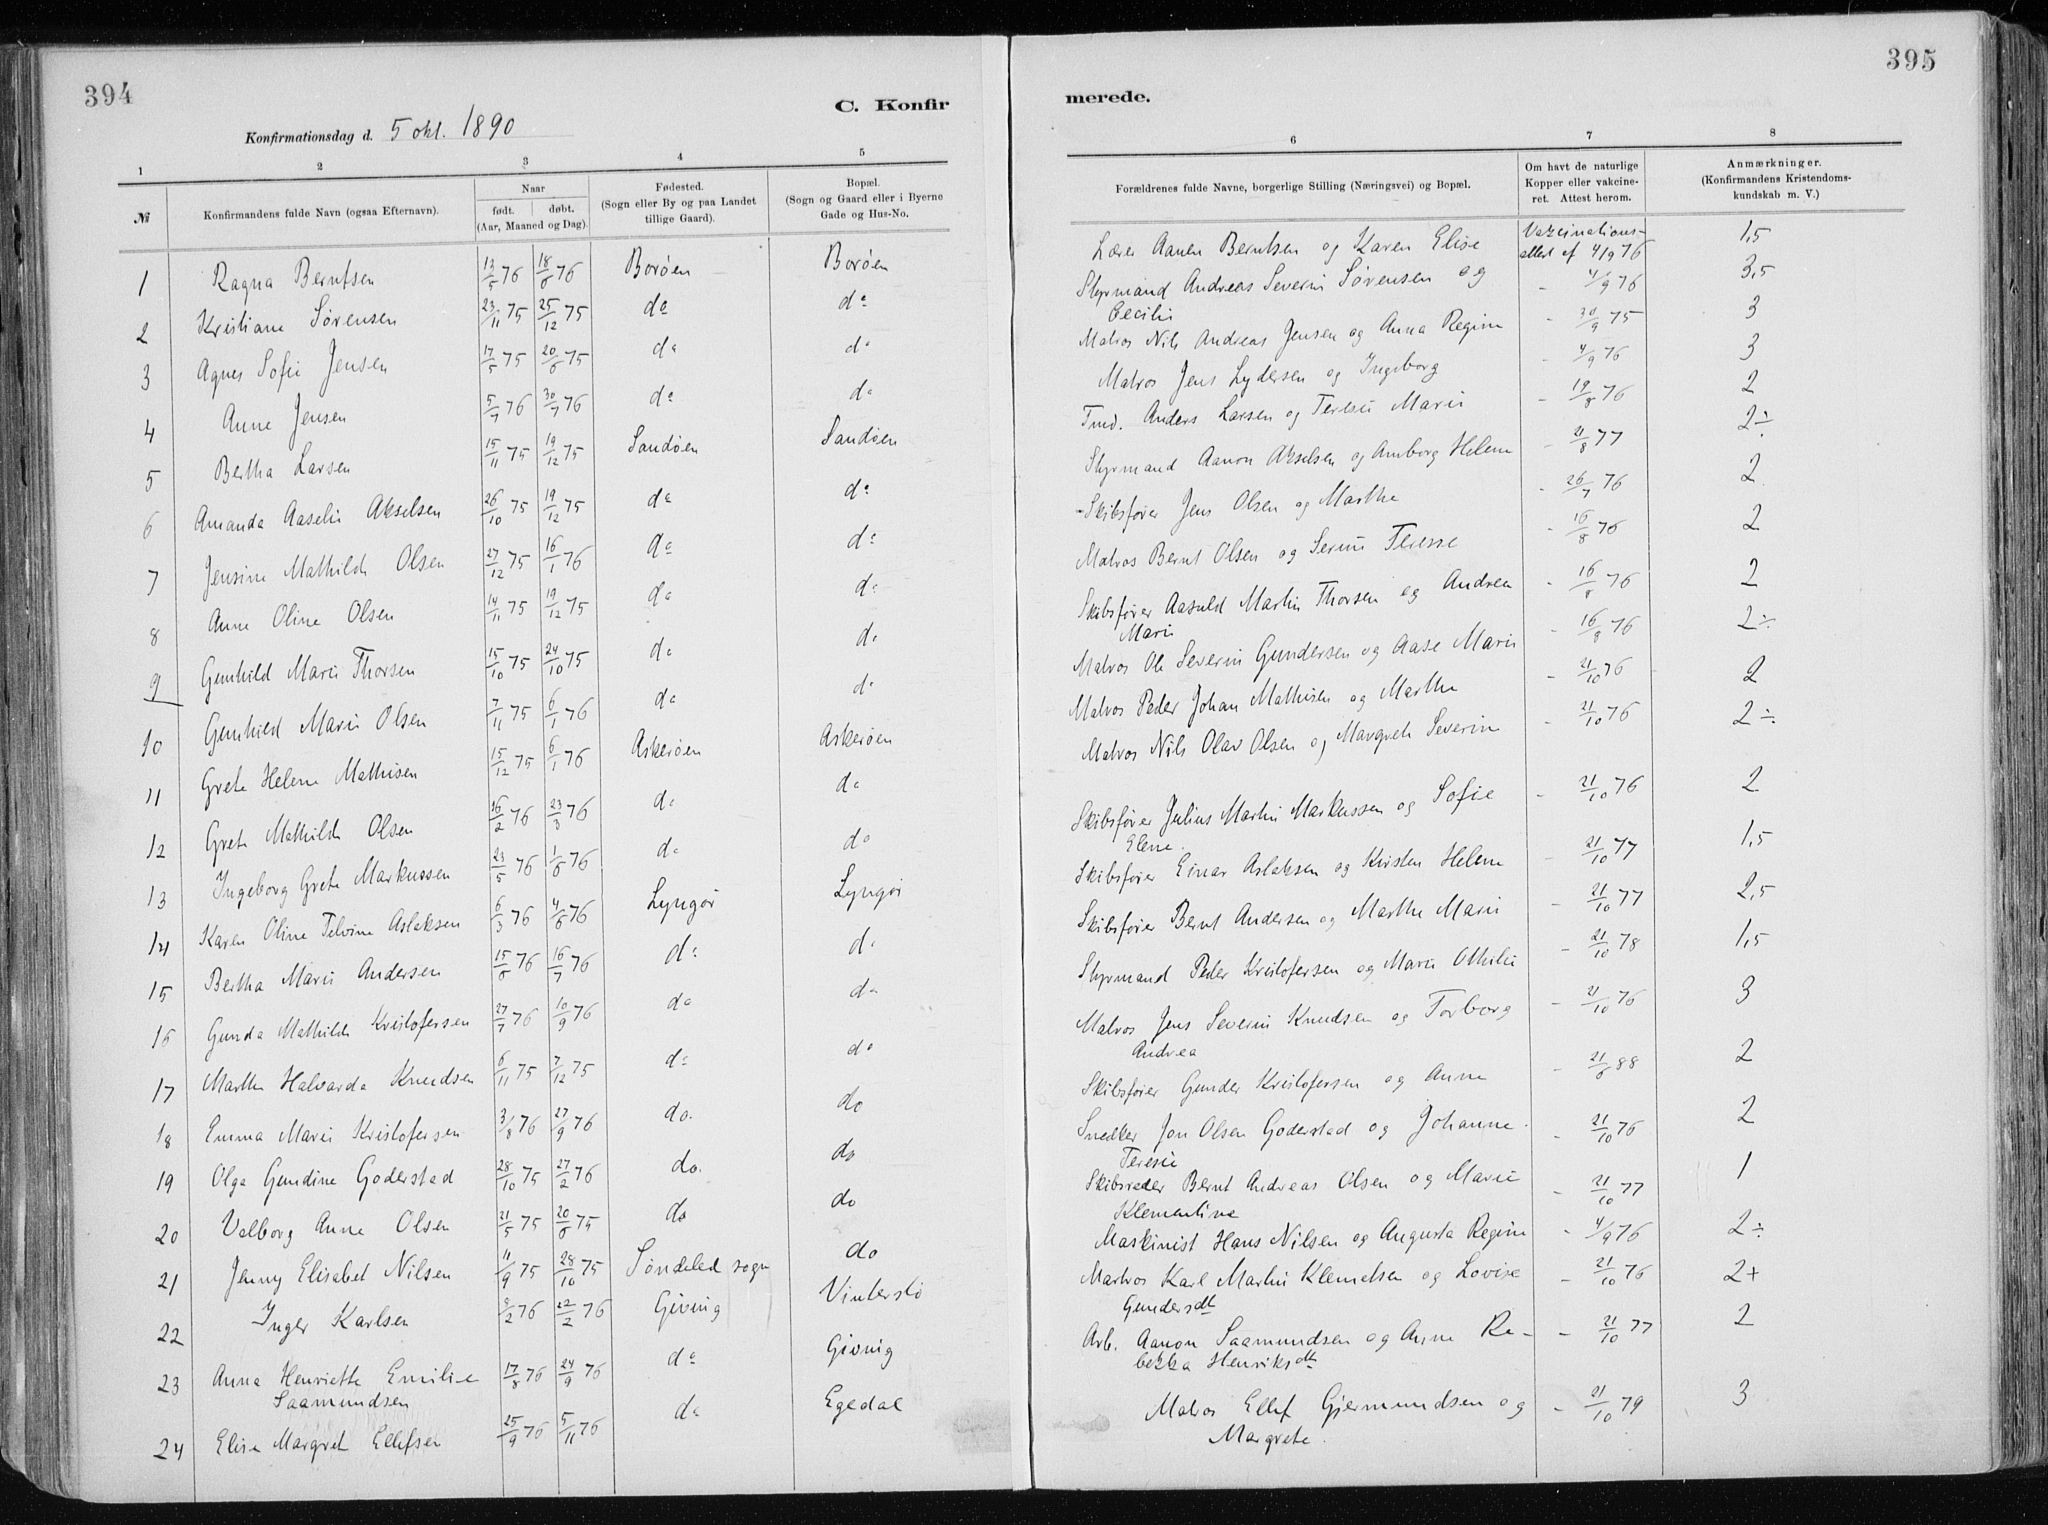 394
C. Konfir
Konfirmationsdag d. 5 okt. 1890
1 2 3 4 5
№ Konfirmandens fulde Navn (ogsaa Efternavn). Naar født. døbt. (Aar, Maaned og Dag). Fødested. (Sogn eller By og paa Landet tillige Gaard). Bopæl. (Sogn og Gaard eller i Byerne Gade og Hus-No.
1 Ragna Berntsen 13/5 76 18/6 76 Borøen Borøen
2 Kristiane Sørensen 23/11 75 25/12 75 do do
3 Agnes Sofie Jensen 17/5 75 20/6 75 do do
4 Anne Jensen 5/7 76 30/7 76 do do
5 Bertha Larsen 15/11 75 19/12 75 Sandøen Sandøen
6 Amanda Aaselie Akselsen 26/10 75 19/12 75 do do
7 Jensine Mathilde Olsen 27/12 75 16/1 76 do do
8 Anne Oline Olsen 14/11 75 19/12 75 do do
9 Gunhild Marie Thorsen 15/10 75 24/10 75 do do
10 Gunhild Marie Olsen 7/11 75 6/1 76 do do
11 Grete Helene Mathisen 15/12 75 6/1 76 Askerøen Askerøen
12 Grete Mathilde Olsen 26/2 76 23/3 76 do do
13 Ingeborg Grete Markussen 23/5 76 1/6 76 do do
14 Karen Oline Telvine Aslaksen 6/3 76 4/6 76 Lyngør Lyngør
15 Bertha Marie Andersen 15/6 76 16/7 76 do do
16 Gunda Mathilde Kristofersen 27/7 76 10/9 76 do do
17 Marthe Halvarda Knudsen 6/11 75 7/12 75 do do
18 Emma Marie Kristofersen 3/8 76 27/9 76 do. do
19 Olga Gundine Goderstad 28/10 75 27/2 76 do. do
20 Valborg Anne Olsen 21/5 75 20/6 75 do do
21 Jenny Elisabet Nilsen 11/9 75 28/10 75 Søndeled sogn do
22 Inger Karlsen 9/2 76 22/2 76 Giving Vinterstø
23 Anna Henriette Emilie Saamundsen 17/8 76 24/9 76 do Giving
24 Elise Margret Ellefsen 25/9 76 5/11 76 do Egedal
395
merede.
6 7 8
Forældrenes fulde Navne, borgerlige Stilling (Næringsvei) og Bopæl. Om havt de naturlige Kopper eller vakcineret. Attest herom. Anmærkninger. (Konfirmandens Kristendomskundskab m. V.)
Lærer Aanen Berntsen og Karen Elise Vaccinationsattest af 4/9 76 1,5
Styrmand Andreas Severin Sørensen og Cecilie - 4/9 76 3,5
Matros Nils Andreas Jensen og Anna Regine - 30/9 75 3
Matros Jens Lydersen og Ingeborg - 4/9 76 3
Tmd. Anders Larsen og Teresie Marie - 19/8 76 2
Styrmand Aanon Akselsen og Amborg Helene - 21/8 77 2÷
Skibsfører Jens Olsen og Marthe - 26/7 76 2
Matros Bernt Olsen og Serine Terese - 16/8 76 2
Skibsfører Aasuld Martin Thorsen og Andrea Marie - 16/8 76 2
Matros Ole Severin Gundersen og Aase Marie - 16/8 76 2÷
Matros Peder Johan Mathisen og Marthe - 21/10 76 2
Matros Nils Olav Olsen og Margrete Severine - 21/10 76 2÷
Skibsfører Julius Martin Markussen og Sofie Elene. - 21/10 76 2
Skibsfører Einar Aslaksen og Kirsten Helene - 21/10 77 1,5
Skibsfører Bernt Andersen og Marthe Marie - 21/10 77 2,5
Styrmand Peder Kristofersen og Marie Othilie - 21/10 78 1,5
Matros Jens Severin Knudsen og Torborg Andrea - 21/10 76 3
Skibsfører Gunder Kristofersen og Anne - 21/6 88 2
Snedker Jon Olsen Goderstad og Johanne Teresie - 21/10 76 2
Skibsreder Bernt Andreas Olsen og Marie Klementine - 21/10 77 1
Maskinist Hans Nilsen og Augusta Regine - 4/9 76 2÷
Martros Karl Martin Klemetsen og Lovise Gundersdt - 21/10 76 2+
Arb. Aanon Saamundsen og Anne Rebekka Henriksdt - 21/10 77 2
Matros Ellef Gjermundsen og Margrete. - 21/10 79 3